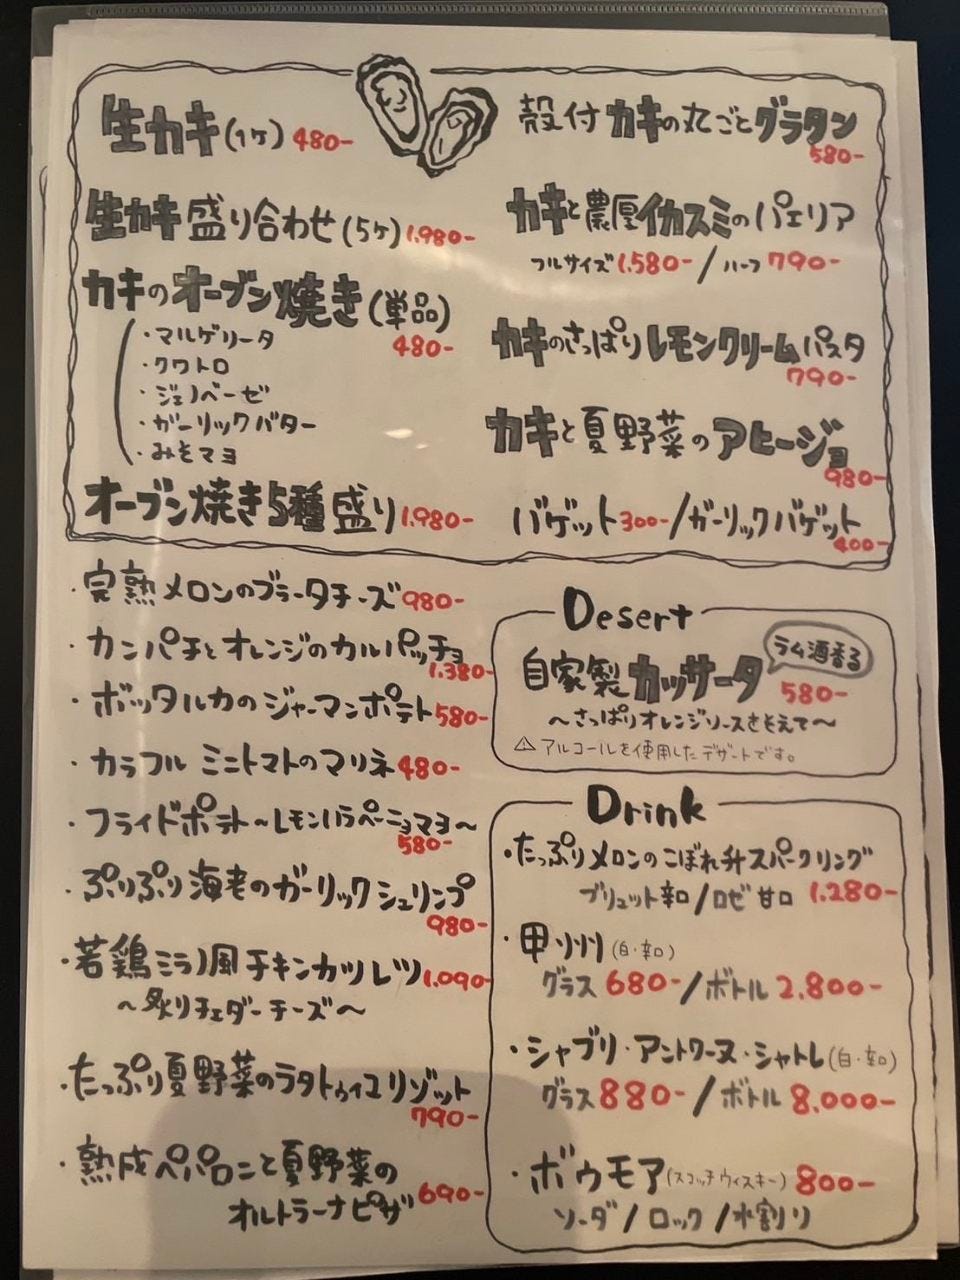 生カキ(1ケ) 480-
生カキ盛り合わせ(5ケ) 1.980-
カキのオーブン焼き(単品)
480-
・マルゲリータ
・クワトロ
・ジェノベーゼ
・ガーリックバター
・みそマヨ
オーブン焼き5種盛り 1.980-
殻付カキの丸ごとグラタン
580-
カキと濃厚イカスミのパエリア
フルサイズ 1.580-/ハーフ 790-
カキのさっぱりレモンクリームパスタ
790-
カキと夏野菜のアヒージョ
980-
バゲット 300-/ガーリックバゲット
400-
・完熟メロンのブラータチーズ 980-
・カンパチとオレンジのカルパッチョ
1.380-
・ボッタルカのジャーマンポテト 580-
・カラフルミニトマトのマリネ 480-
・フライドポテト～レモンハラペーニョマヨ～
580-
・ぷりぷり海老のガーリックシュリンプ
980-
・若鶏ミラノ風チキンカツレツ 1.090-
～炙りチェダーチーズ～
・たっぷり夏野菜のラタトゥイユリゾット
790-
・熟成ペパロニと夏野菜の
オルトラーナピザ 690-
Desert
ラム酒香る
自家製カッサータ 580-
～さっぱりオレンジソースをそえて～
⚠アルコールを使用したデザートです。
Drink
・たっぷりメロンのこぼれ升スパークリング
ブリュット辛口/ロゼ甘口 1.280-
・甲州(白・辛口)
グラス 680-/ボトル 2.800-
・シャブリ・アントワーヌ・シャトレ(白・辛口)
グラス 880-/ボトル 8.000-
・ボウモア(スコッチウィスキー) 800-
ソーダ/ロック/水割り